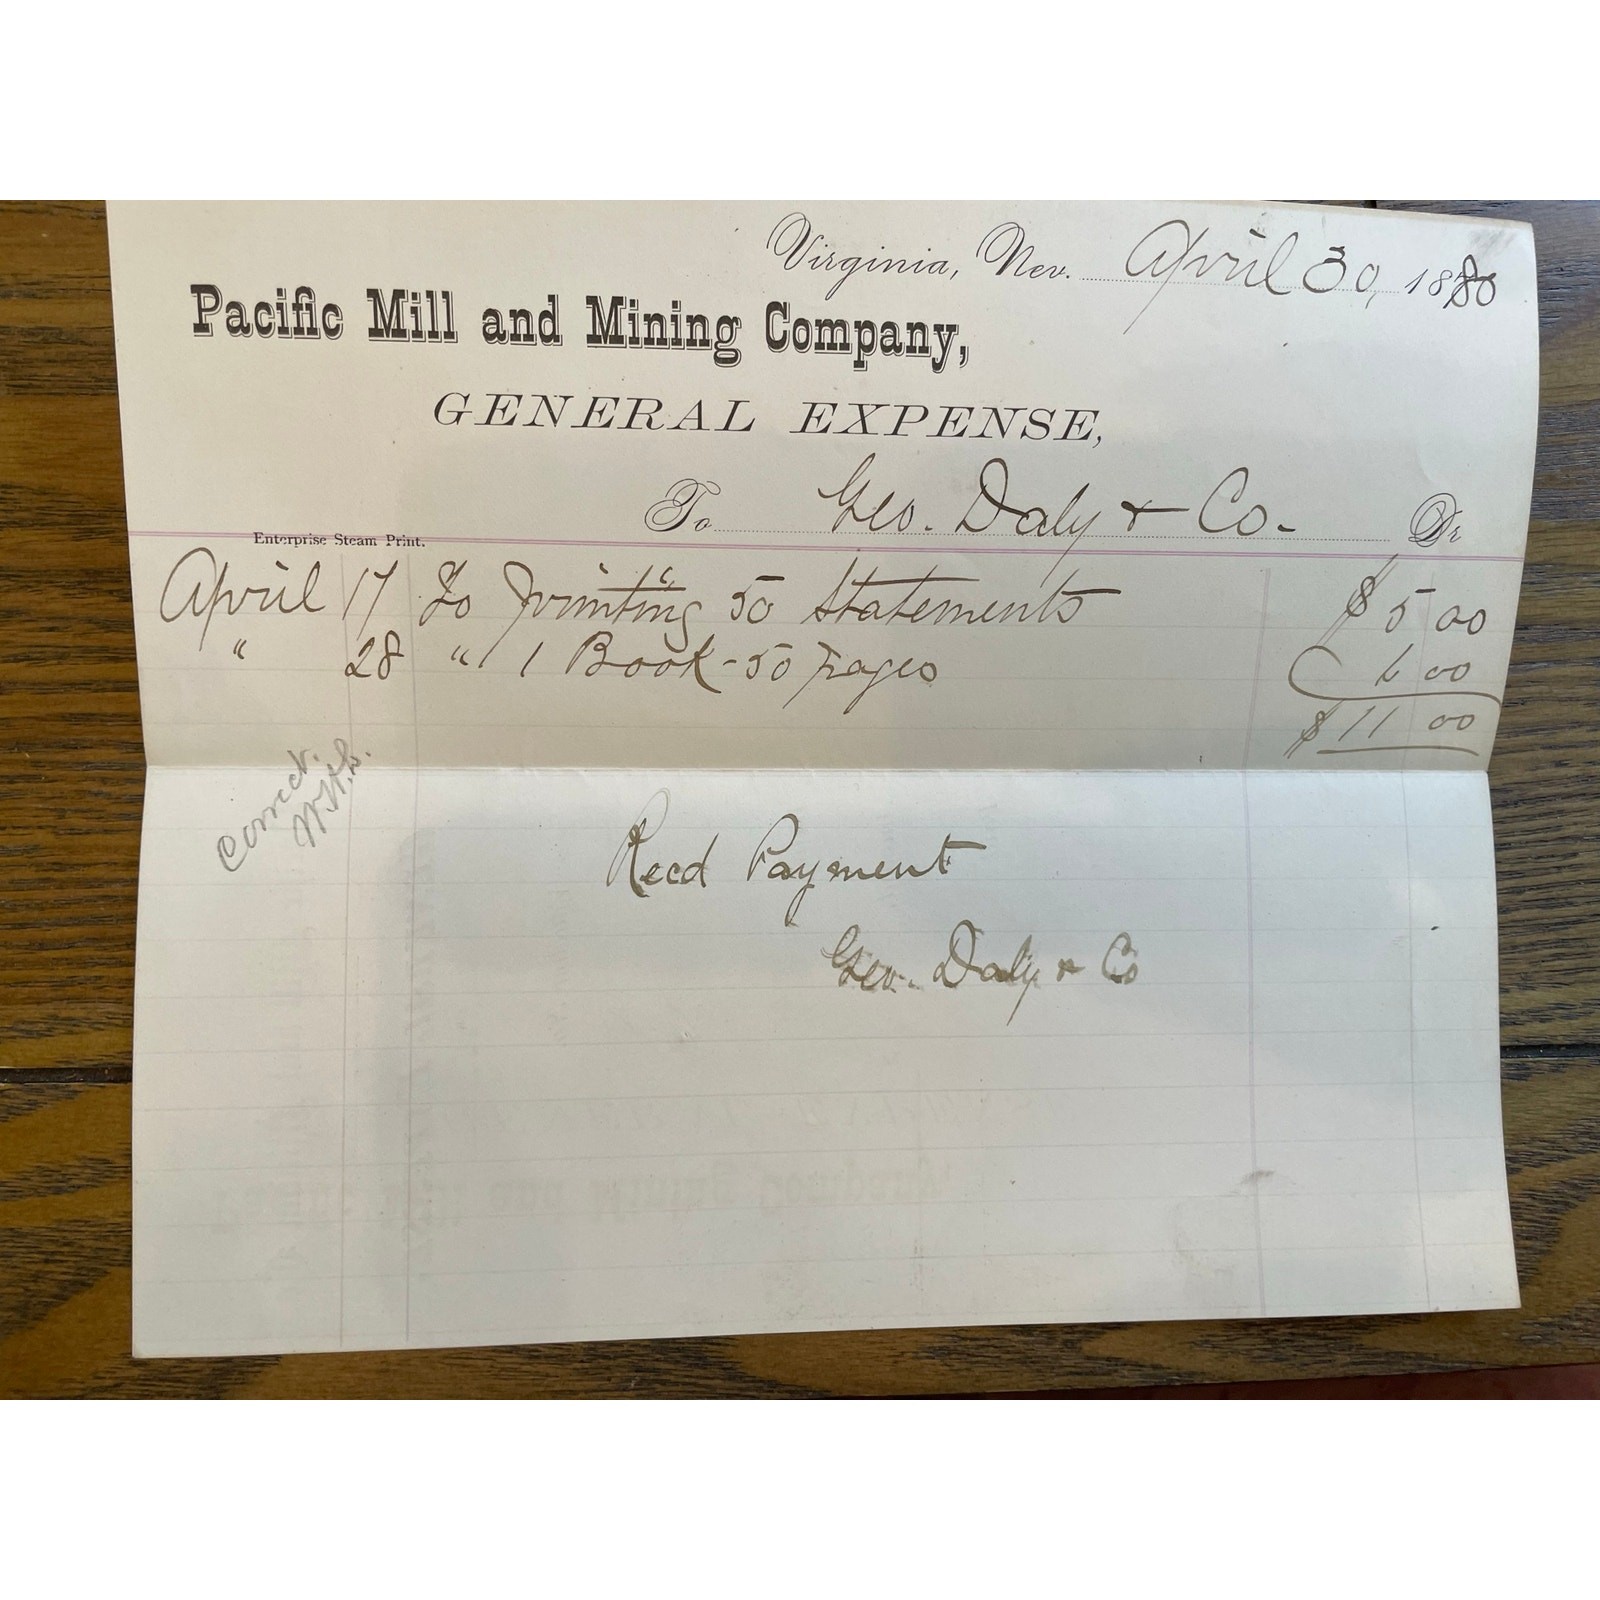 Virginia, Nev. April 30, 1880
Pacific Mill and Mining Company,
GENERAL EXPENSE,
To Geo. Daly & Co. Dr
Enterprise Steam Print.
April 17 To printing 50 Statements $5 00
" 28 " 1 Book - 50 pages 6 00
$11 00
Correct.
Recd Payment
Geo. Daly & Co